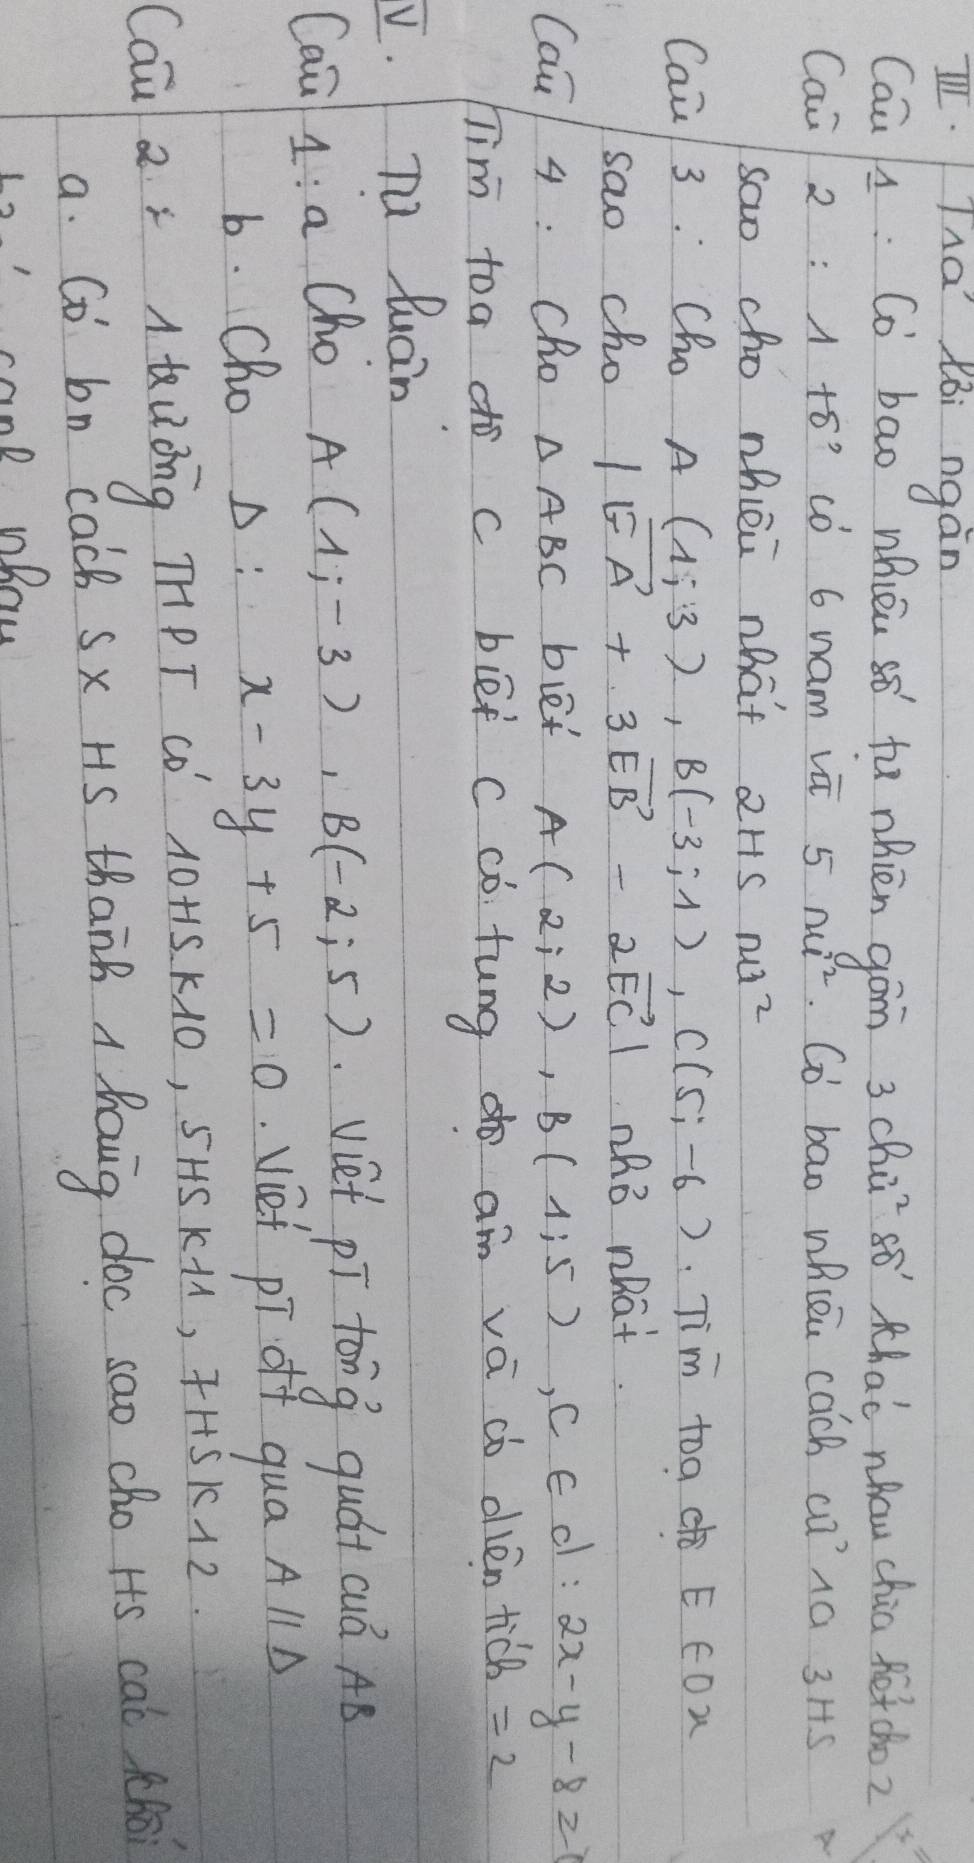 III. Trả lời ngắn
Câu 1: Có bao nhiêu số tự nhiên gồm 3 chữ số khác nhau chia hết cho 2
Câu 2: 1 tổ có 6 nam và 5 nữ. Có bao nhiêu cách cử ra 3HS
sao cho nhiều nhất 2HS nữ
Câu 3: Cho A (1;3), B(-3;1), C(5;-6). Tìm toạ độ E ∈ Ox
sao cho |EA + 3EB - 2EC| nhỏ nhất.
Câu 4: Cho Δ ABC biết A(2;2), B(1;5), C ∈ d: 2x-y-8=0
Tìm toạ độ C biết C có tung độ âm và có diện tích = 2
IV. Tự luận
Câu 1: a Cho A(1;-3), B(-2;5). Viết pT tổng quát của AB
b. Cho Δ: x-3y+5=0. Viết pT đt qua A // Δ
Câu 2: 1 trường THPT có 10HSK10, 5HSK11, 7HSK12.
a. Có bn cách SX HS thành 1 hàng dọc sao cho HS các khối
cạnh nhau